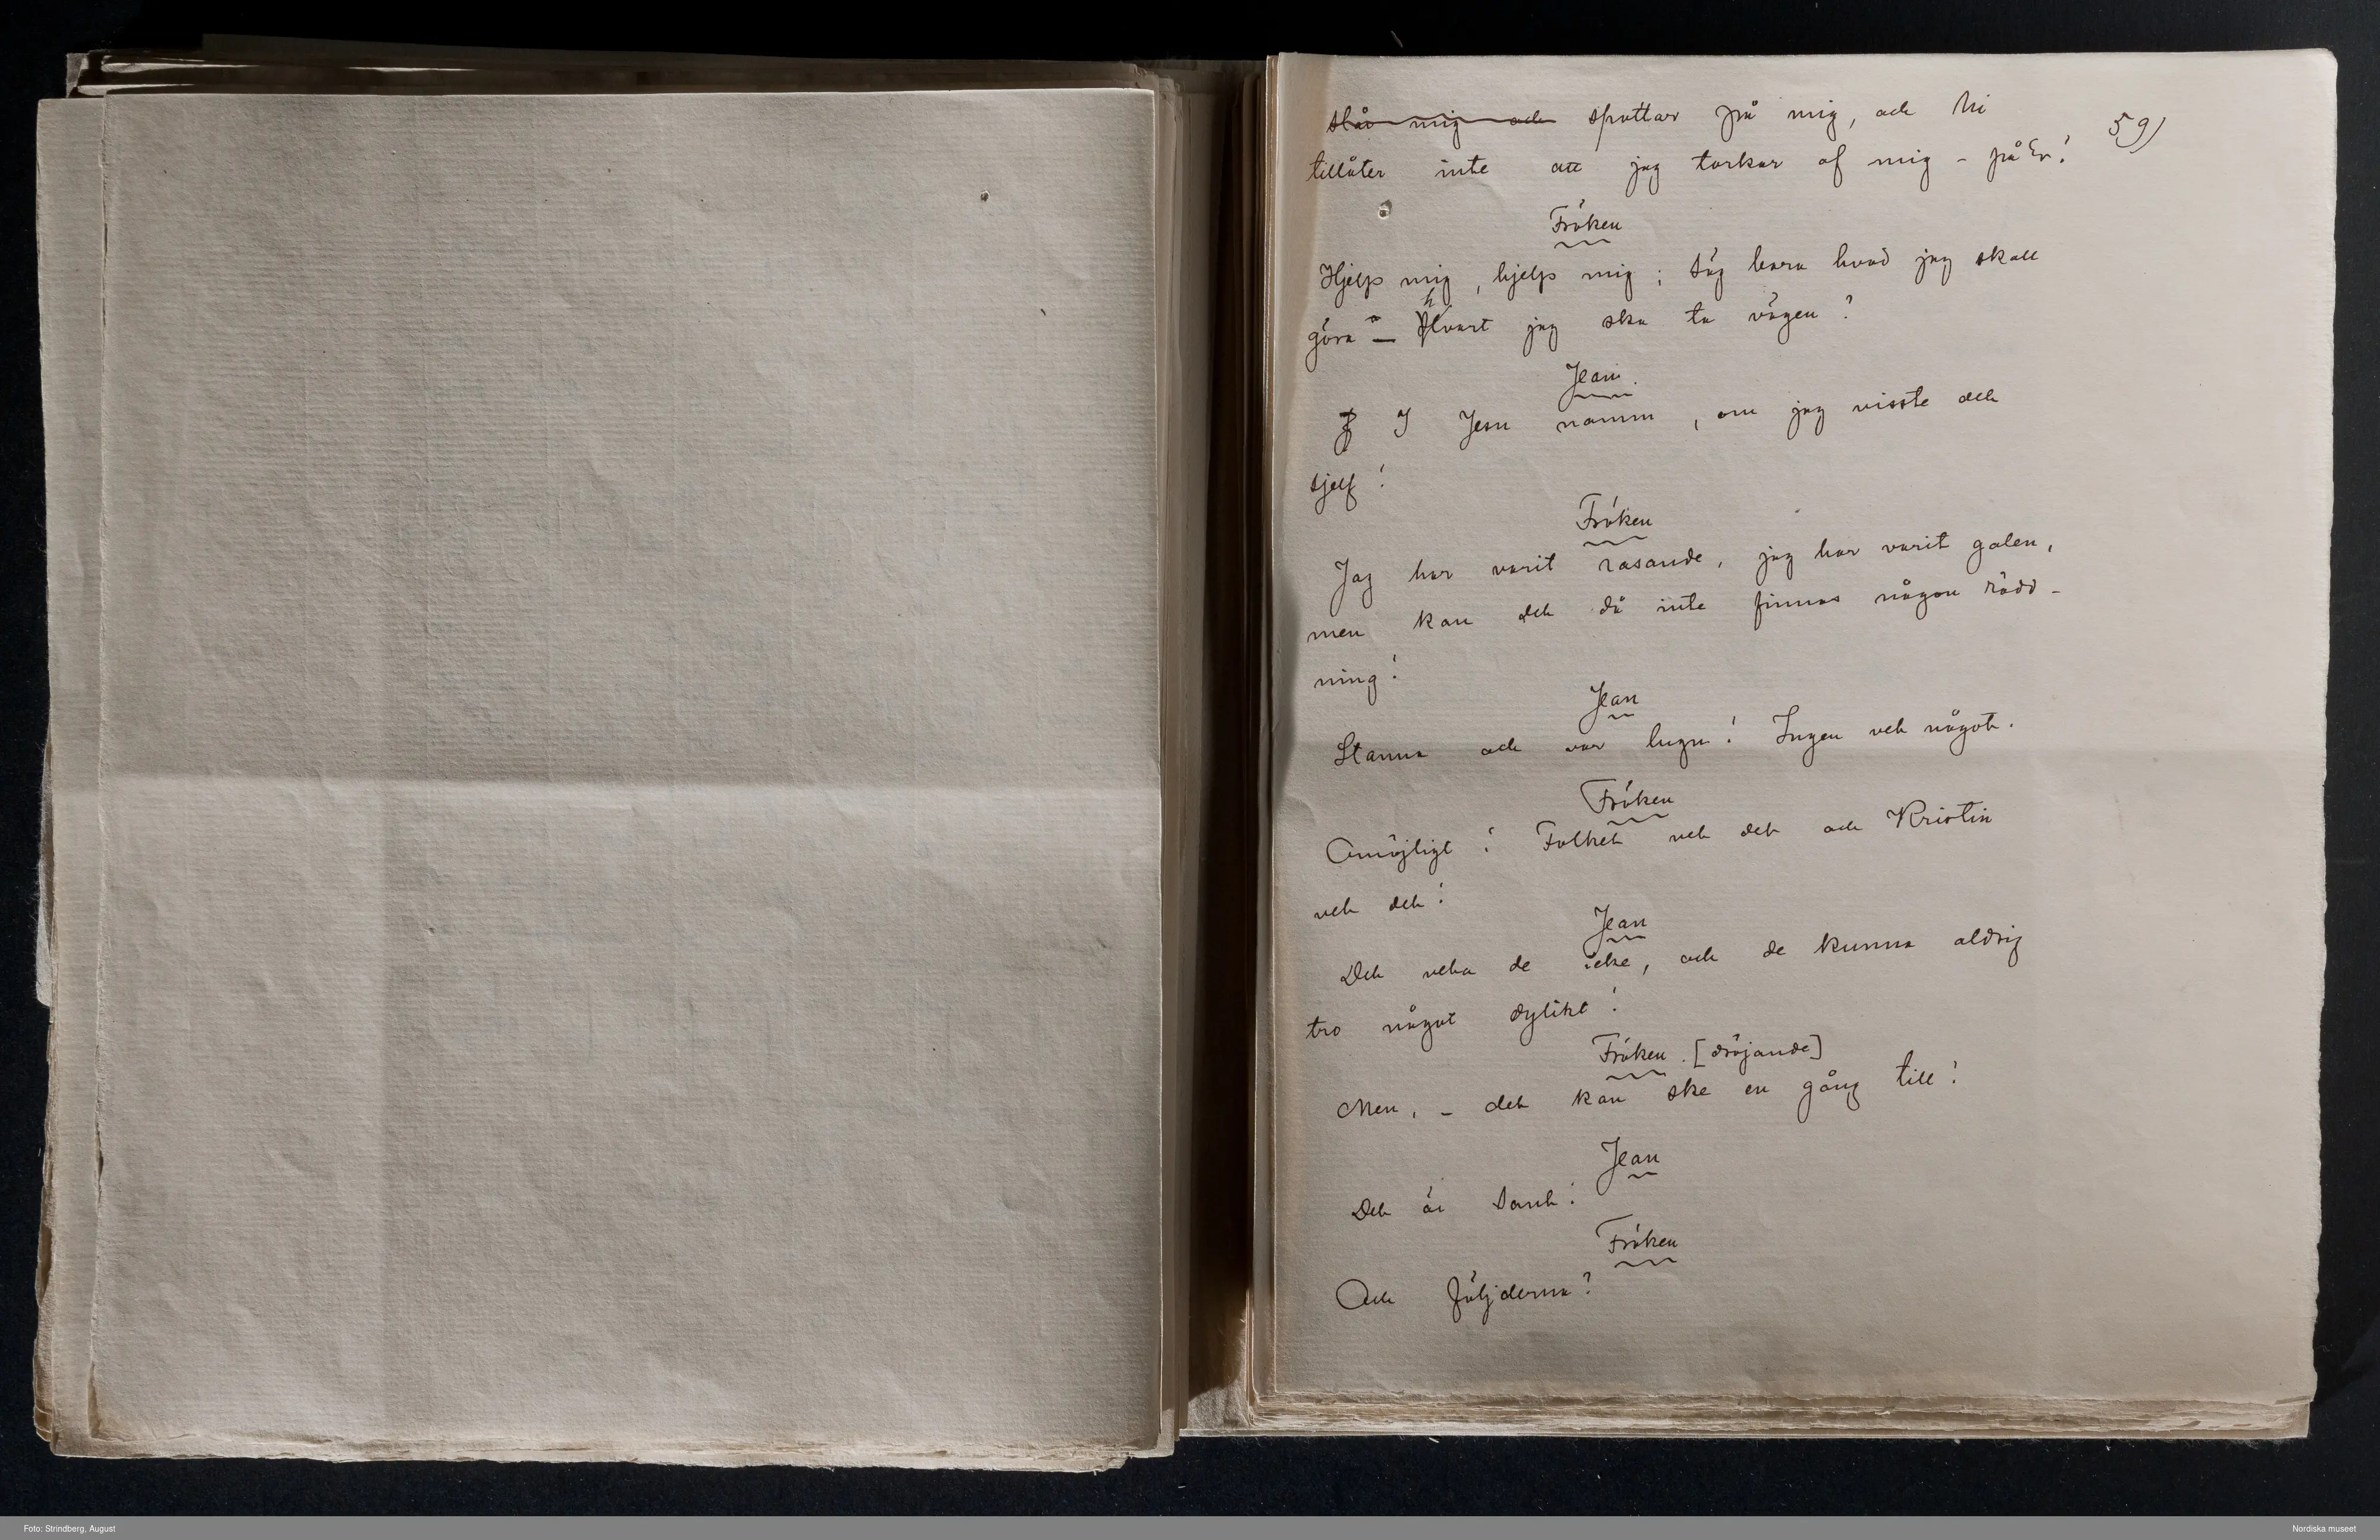 slår mig och spottar på mig, och Ni
59)
tillåter inte att jag torkar af mig – på Er!
Fröken
Hjelp mig, hjelp mig; säg bara hvad jag skall
göra – hvart jag ska ta vägen?
Jean.
I Jesu namn, om jag visste det
sjelf!
Fröken
Jag har varit rasande, jag har varit galen,
men kan det då inte finnas någon rädd-
ning!
Jean
Stanna och var lugn! Ingen vet något.
Fröken
Omöjligt! Folket vet det och Kristin
vet det!
Jean
Det veta de icke, och de kunna aldrig
tro något dylikt!
Fröken. [dröjande]
Men, – det kan ske en gång till!
Jean
Det är sant!
Fröken
Och följderna?
Foto: Strindberg, August
Nordiska museet